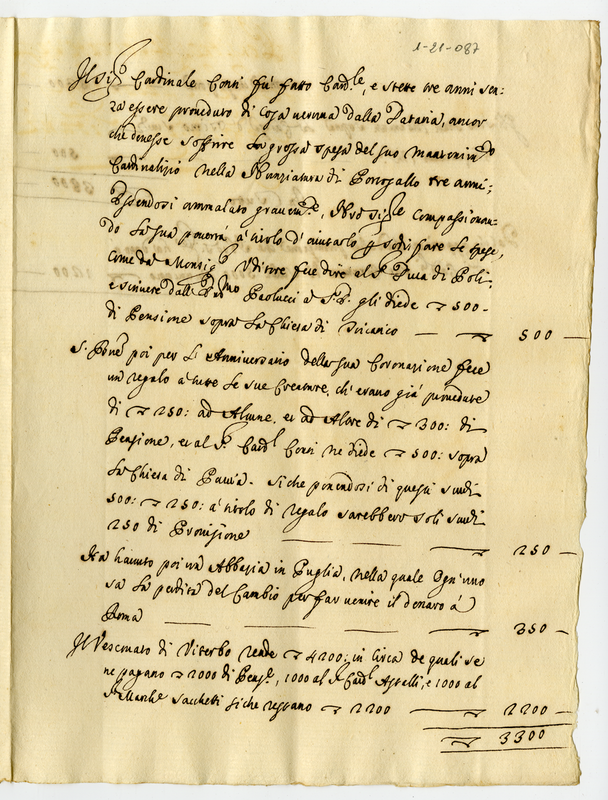 1-21-087
Il Sig.r Cardinale Conti fù fatto Card.le, e stette tre anni sen-
za essere proveduto di cosa veruna dalla Dataria, ancor
che dovesse soffrire la grossa spesa del suo mantenim.to
Cardinalizio nella Nunziatura di Portogallo tre anni;
Essendosi ammalato gravem.te, compassionan-
do la sua povertà à titolo d'aiutarlo à sodisfare le spese,
come da Monsig.r Uditore fece dire al S.r Duca di Poli
e scrivere dall' Paolucci a gli diede 500-
di Pensione sopra la Chiesa di — 500 —
S. poi per l'Anniversario della sua Coronazione fece
un regalo à tutte le sue Creature, ch'erano già provedute
di 250: ad Alcune, et ad Altre di 300: di
Pensione, et al S.r Card.l Conti ne diede 500: sopra
la Chiesa di Pavia. Siche ponendosi di questi scudi
500: 250: à titolo di regalo sarebbero soli scudi
250 di Provisione — 250 —
Ha havuto poi un' Abbazia in Puglia, nella quale Ogn'uno
sa la perdita del Cambio per far venire il denaro à
Roma — 350 —
Il Vescovato di Viterbo rende 4200: in circa de quali se
ne pagano 2000 di Pens.e, 1000 al S.r Card.l Astalli, e 1000 al
S.r Marche Sacchetti siche restano 2200 — 2200 —
3300